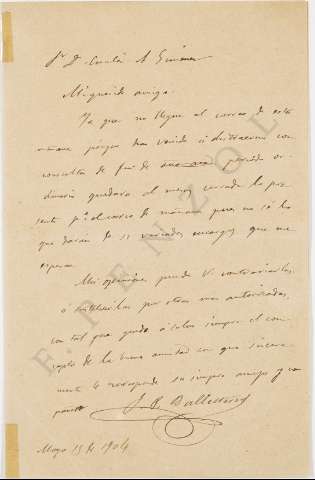 Sr D. A. Giménez
Mi querido amigo:
Ya que no llegue al correo de esta
mañana porque han venido á distraerme con
consulta de fin de periodo or-
dinario quedará al mejor cerrada la pre-
sente pa el correo de mañana pues no sé lo
que darán de sí variados encargos que me
esperan.
Mis opiniones puede V. contrariarlas
ó sustituirlas por otras mas autorizadas,
con tal que quede á salvo siempre el con-
cepto de la buena amistad con que sincera-
mente le corresponde su siempre amigo y com-
pañero
J. R. Ballesteros
Mayo 15 de 1904
E. RENZO